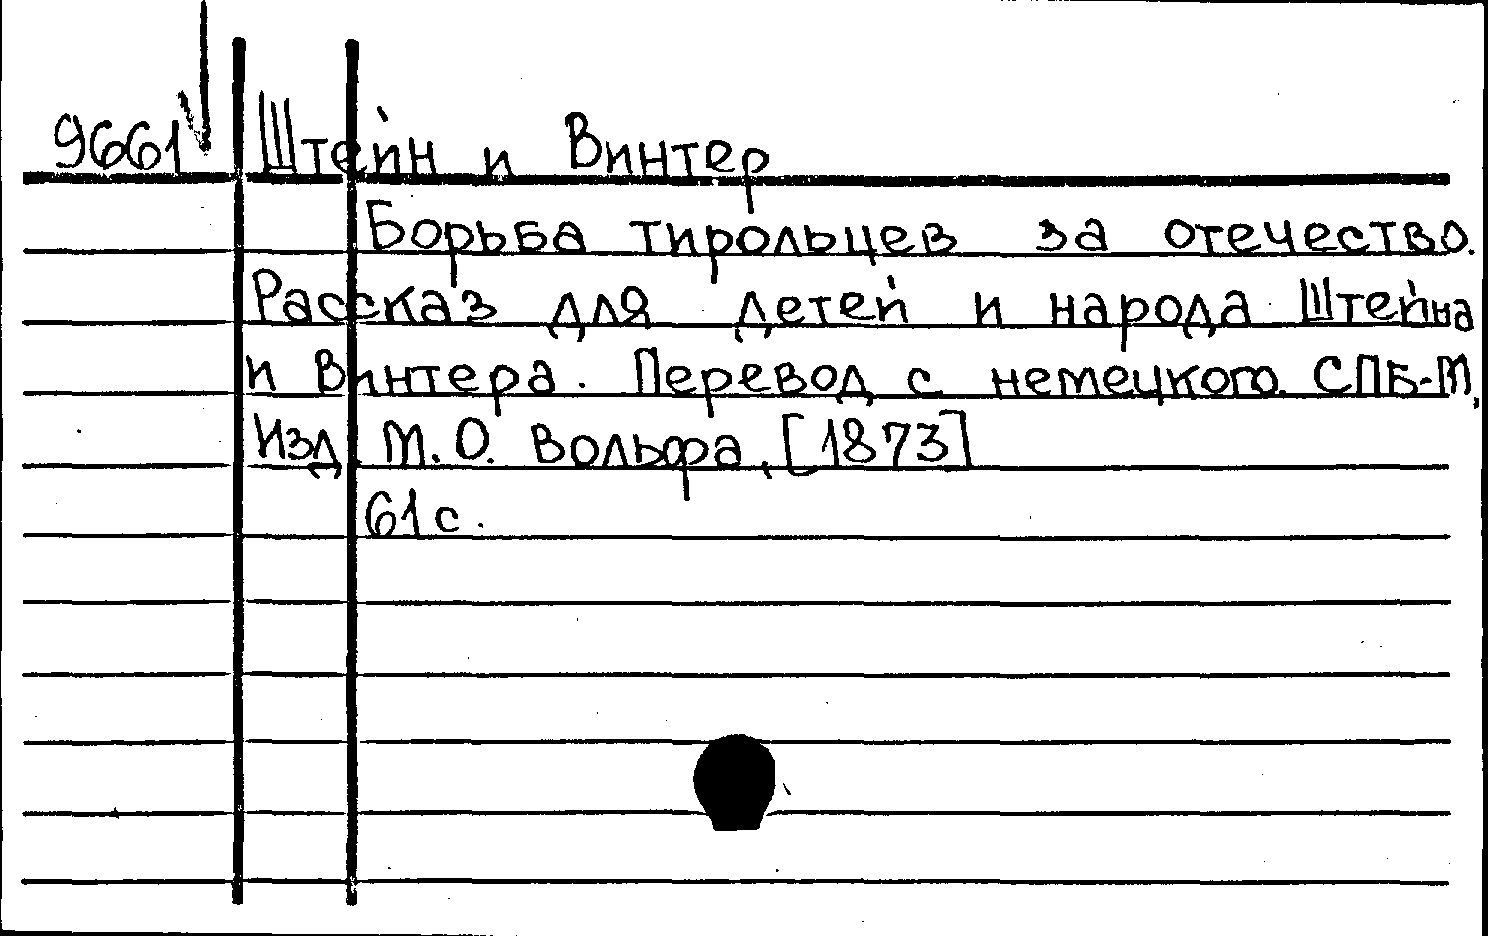 9661 Штейн и Винтер
Борьба тирольцев за отечество.
Рассказ для детей и народа Штейна
и Винтера. Перевод с немецкого. СПБ-М,
Изд. М.О. Вольфа, [1873]
61 с.